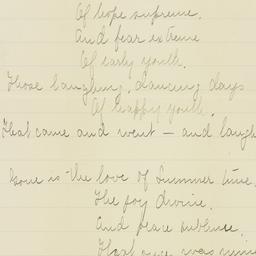 Of hope supreme.
And fear extreme
Of early youth.
Those laughing, dancing days
Of happy youth,
That came and went — and laugh
Gone is the love of Summer time,
The joy divine,
And peace sublime,
That once was mine